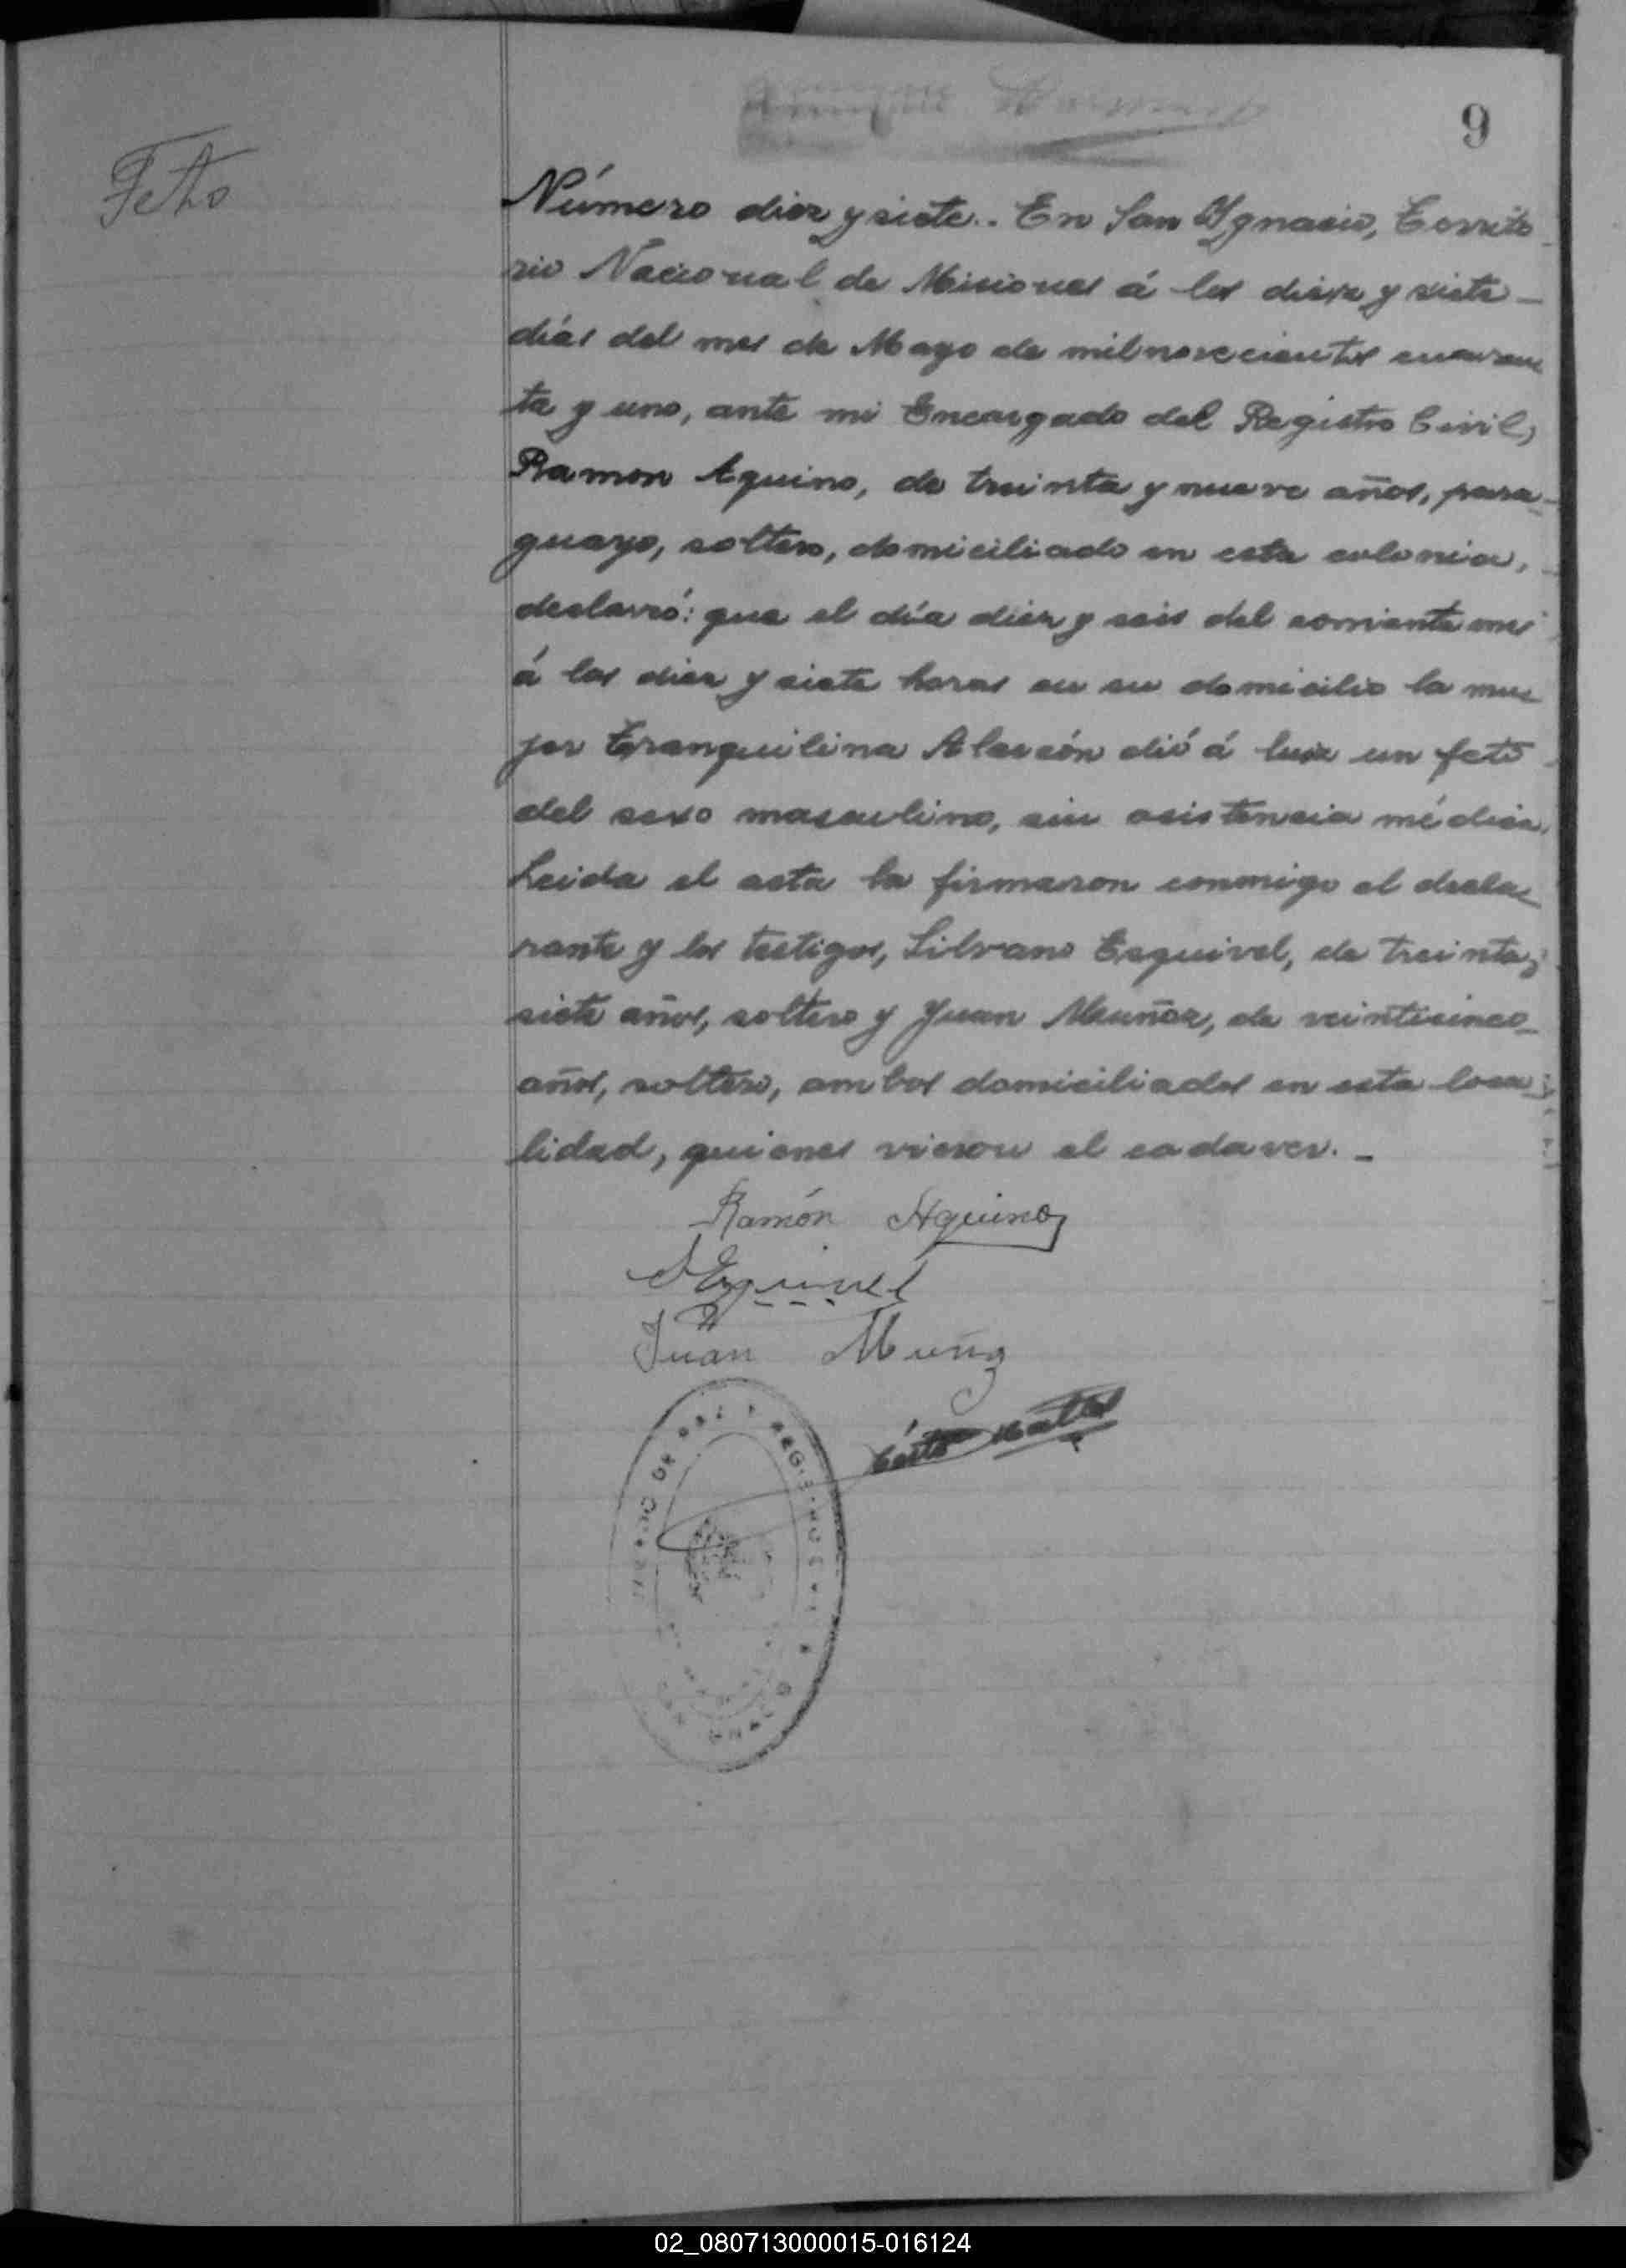 9
Feto
Número diez y siete.. En San Ygnacio, Territo
rio Nacional de Misiones á los diez y siete -
días del mes de Mayo de mil novecientos cuaren
ta y uno, ante mi Encargado del Registro Civil,
Ramon Aquino, de treinta y nueve años, para-
guayo, soltero, domiciliado en esta colonia, -
declaró: que el día diez y seis del corriente mes
á las diez y siete horas en su domicilio la mu-
jer Tranquilina Alarcón dió á luz un feto
del sexo masculino, sin asistencia médica.
Leida el acta la firmaron conmigo el decla-
rante y los testigos, Silvano Esquivel, de treinta y
siete años, soltero y Juan Muñoz, de veinticinco
años, soltero, ambos domiciliados en esta loca-
lidad, quienes vieron el cadaver. -
Ramón Aquino
S Esquivel
Juan Muñoz
REGISTRO CIVIL
02_080713000015-016124